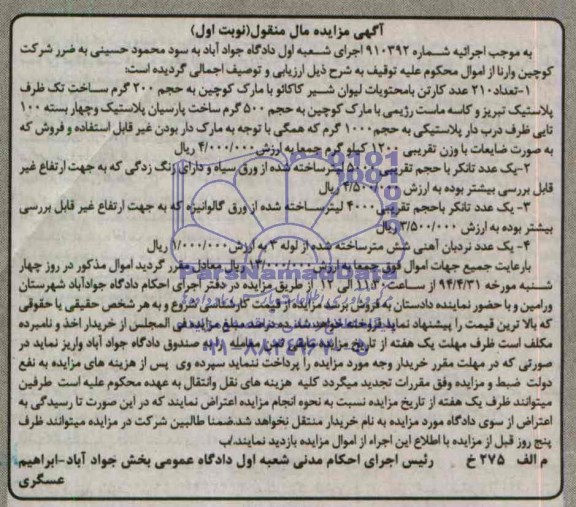 آگهی مزایده مال منقول(نوبت اول)
به موجب اجرائیه شماره ۹۱۰۳۹۲ اجرای شعبه اول دادگاه جواد آباد به سود محمود حسینی به ضرر شرکت
کوچین وارنا از اموال محکوم علیه توقیف به شرح ذیل ارزیابی و توصیف اجمالی گردیده است:
۱-تعداد۲۱۰ عدد کارتن بامحتویات لیوان شیر کاکائو با مارک کوچین به حجم ۲۰۰ گرم ساخت تک ظرف
پلاستیک تبریز و کاسه ماست رژیمی با مارک کوچین به حجم ۵۰۰ گرم ساخت پارسیان پلاستیک وچهار بسته ۱۰۰
تایی ظرف درب دار پلاستیکی به حجم۱۰۰۰ گرم که همگی با توجه به مارک دار بودن غیر قابل استفاده و فروش که
به صورت ضایعات با وزن تقریبی ۱۲۰۰ کیلو گرم جمعا به ارزش ۴/۰۰۰/۰۰۰ ریال
۲-یک عدد تانکر با حجم تقریبی ۵۰۰۰ لیترساخته شده از ورق سیاه و دارای زنگ زدگی که به جهت ارتفاع غیر
قابل بررسی بیشتر بوده به ارزش ۴/۵۰۰/۰۰۰ ریال
۳- یک عدد تانکر باحجم تقریبی۴۰۰۰ لیترساخته شده از ورق گالوانیزه که به جهت ارتفاع غیر قابل بررسی
بیشتر بوده به ارزش ۳/۵۰۰/۰۰۰ ریال
۴- یک عدد نردبان آهنی شش مترساخته شده از لوله ۳ به ارزش۱/۰۰۰/۰۰۰ ریال
بارعایت جمیع جهات اموال فوق جمعا به ارزش ۱۳/۰۰۰/۰۰۰ ریال معادل مقرر گردید اموال مذکور در روز چهار
شنبه مورخه ۹۴/۴/۳۱ از ساعت ۱۱:۳۰ الی ۱۲ از طریق مزایده در دفتر اجرای احکام دادگاه جوادآباد شهرستان
ورامین و با حضور نماینده دادستان به فروش برسد مزایده از قیمت کارشناسی شروع و به هر شخص حقیقی یا حقوقی
که بالا ترین قیمت را پیشنهاد نماید فروخته خواهد شد.ده درصد مبلغ مزایده فی المجلس از خریدار اخذ و نامبرده
مکلف است ظرف مهلت یک هفته از تاریخ مزایده مابقی ثمن معامله را به صندوق دادگاه جواد آباد واریز نماید در
صورتی که در مهلت مقرر خریدار وجه مورد مزایده را پرداخت ننماید سپرده وی پس از هزینه های مزایده به نفع
دولت ضبط و مزایده وفق مقررات تجدید میگردد کلیه هزینه های نقل وانتقال به عهده محکوم علیه است طرفین
میتوانند ظرف یک هفته از تاریخ مزایده نسبت به نحوه انجام مزایده اعتراض نمایند که در این صورت تا رسیدگی به
اعتراض از سوی دادگاه مورد مزایده به نام خریدار منتقل نخواهد شد.ضمنا طالبین شرکت در مزایده میتوانند ظرف
پنج روز قبل از مزایده با اطلاع این اجراء از اموال مزایده بازدید نمایند/ب
م الف ۲۷۵ خ رئیس اجرای احکام مدنی شعبه اول دادگاه عمومی بخش جواد آباد-ابراهیم
عسگری
ParsNamadData